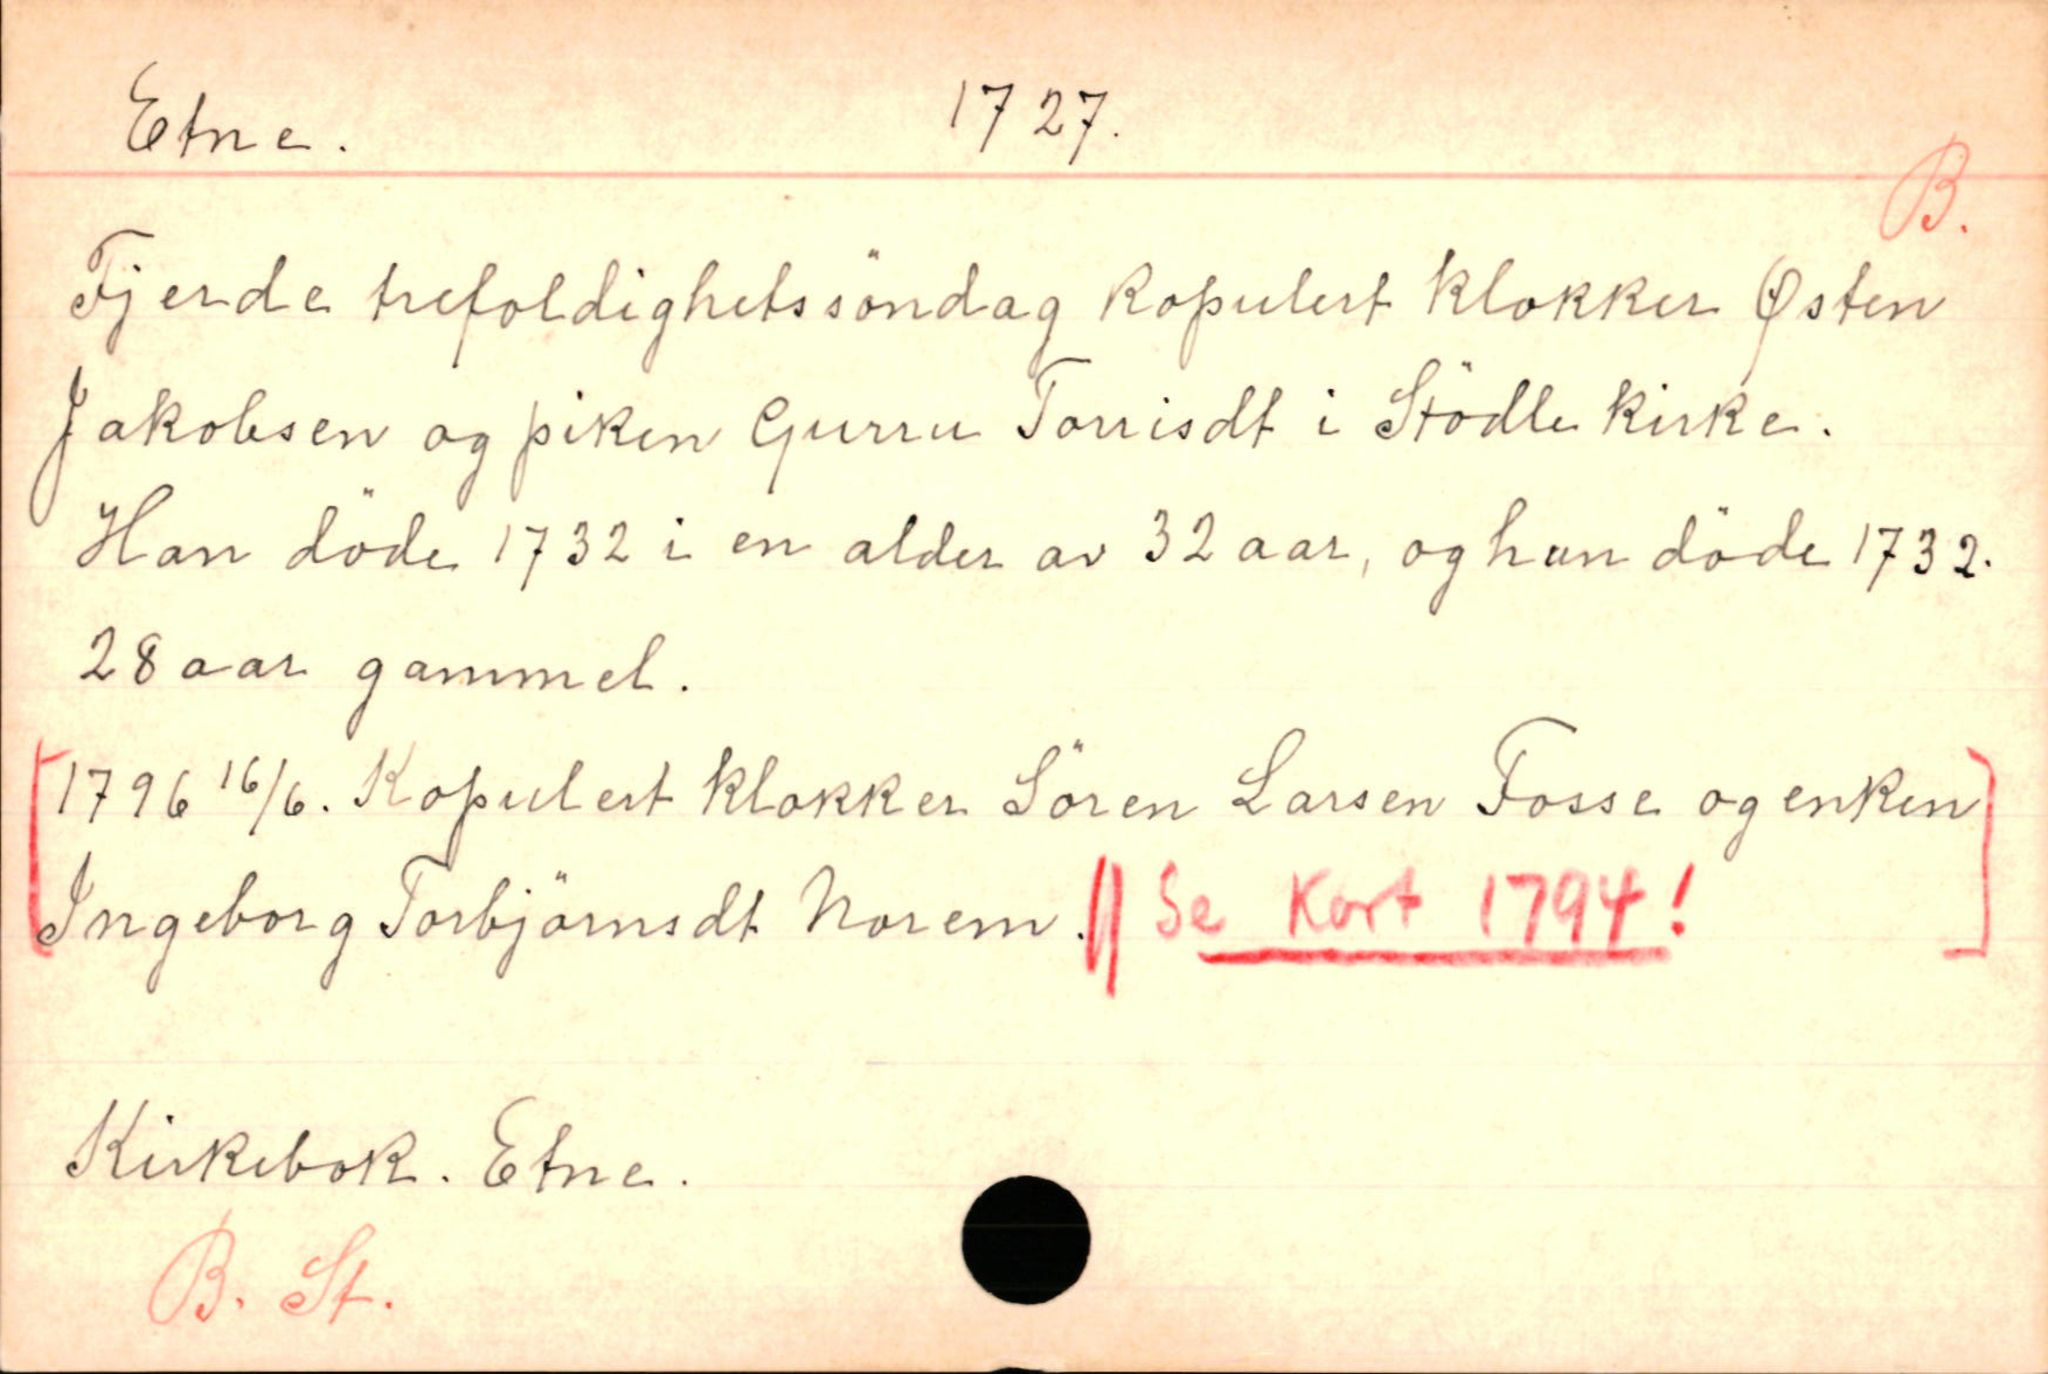 Etne. 1727.
B.
Fjerde trefoldighetssöndag kopulert klokker Østen
Jakobsen og piken Gurru Torrisdt i Stödle kirke.
Han döde 1732 i en alder av 32 aar, og hun döde 1732.
28 aar gammel.
[1796 16/6. Kopulert klokker Sören Larsen Fosse og enken
Ingeborg Torbjörnsdt Norem. || Se Kort 1794! ]
Kirkebok. Etne.
B. St.